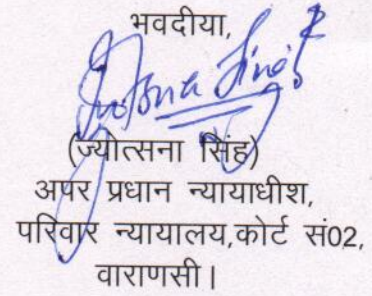 भवदीया,
Jyotsna Singh
(ज्योत्सना सिंह)
अपर प्रधान न्यायाधीश,
परिवार न्यायालय,कोर्ट सं02,
वाराणसी।